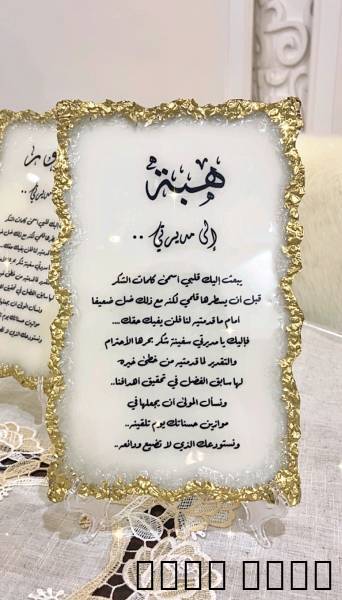 هبة
إلى مديرتي ..
يبعث إليك قلبي أسمى كلمات الشكر
قبل أن يسطرها قلمي لكنه مع ذلك ظل ضعيفا
أمام ما قدمتيه لنا فلن يفيك حقك...
فإليك يا مديرتي سفينة شكر بحرها الأحترام
والتقدير لما قدمتيه من خطى خيره
لها سابق الفضل في تحقيق أهدافنا..
ونسأل المولى أن يجعلها في
موازين حسناتك يوم تلقينه..
ونستودعك الذي لا تضيع ودائعه..